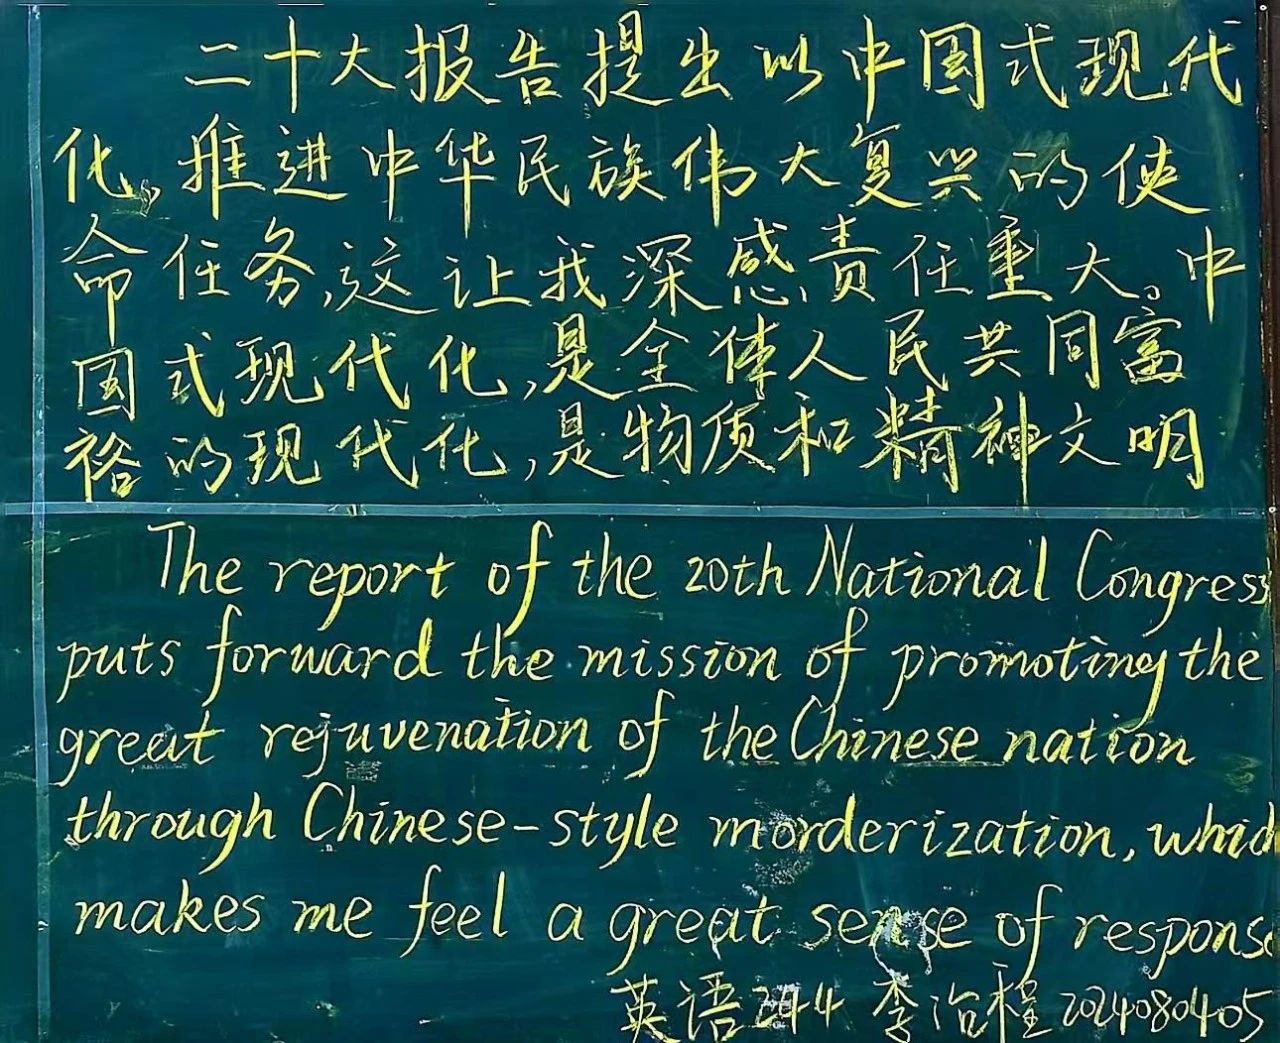 二十大报告提出以中国式现代
化,推进中华民族伟大复兴的使
命任务,这让我深感责任重大。中
国式现代化,是全体人民共同富
裕的现代化,是物质和精神文明
The report of the 20th National Congress
puts forward the mission of promoting the
great rejuvenation of the Chinese nation
through Chinese-style morderization, which
makes me feel a great sense of respons
英语244 李治程 2024080405